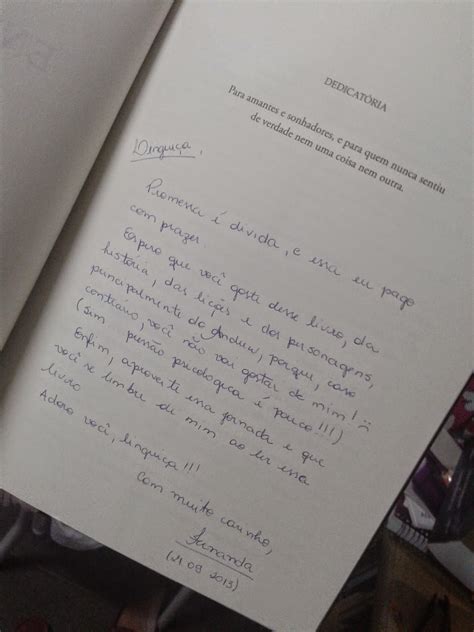 DEDICATÓRIA
Para amantes e sonhadores, e para quem nunca sentiu
de verdade nem uma coisa nem outra.
Linguiça,
Promessa é dívida, e essa eu pago
com prazer.
Espero que você goste desse livro, da
história, das lições e dos personagens,
principalmente do Andrew, porque, caso
contrário, você não vai gostar de mim! :)
(sim pressão psicológica é pouco!!!)
Enfim, aproveite essa jornada e que
você se lembre de mim ao ler esse
livro
Adoro você, linguiça!!!
Com muito carinho,
Fernanda